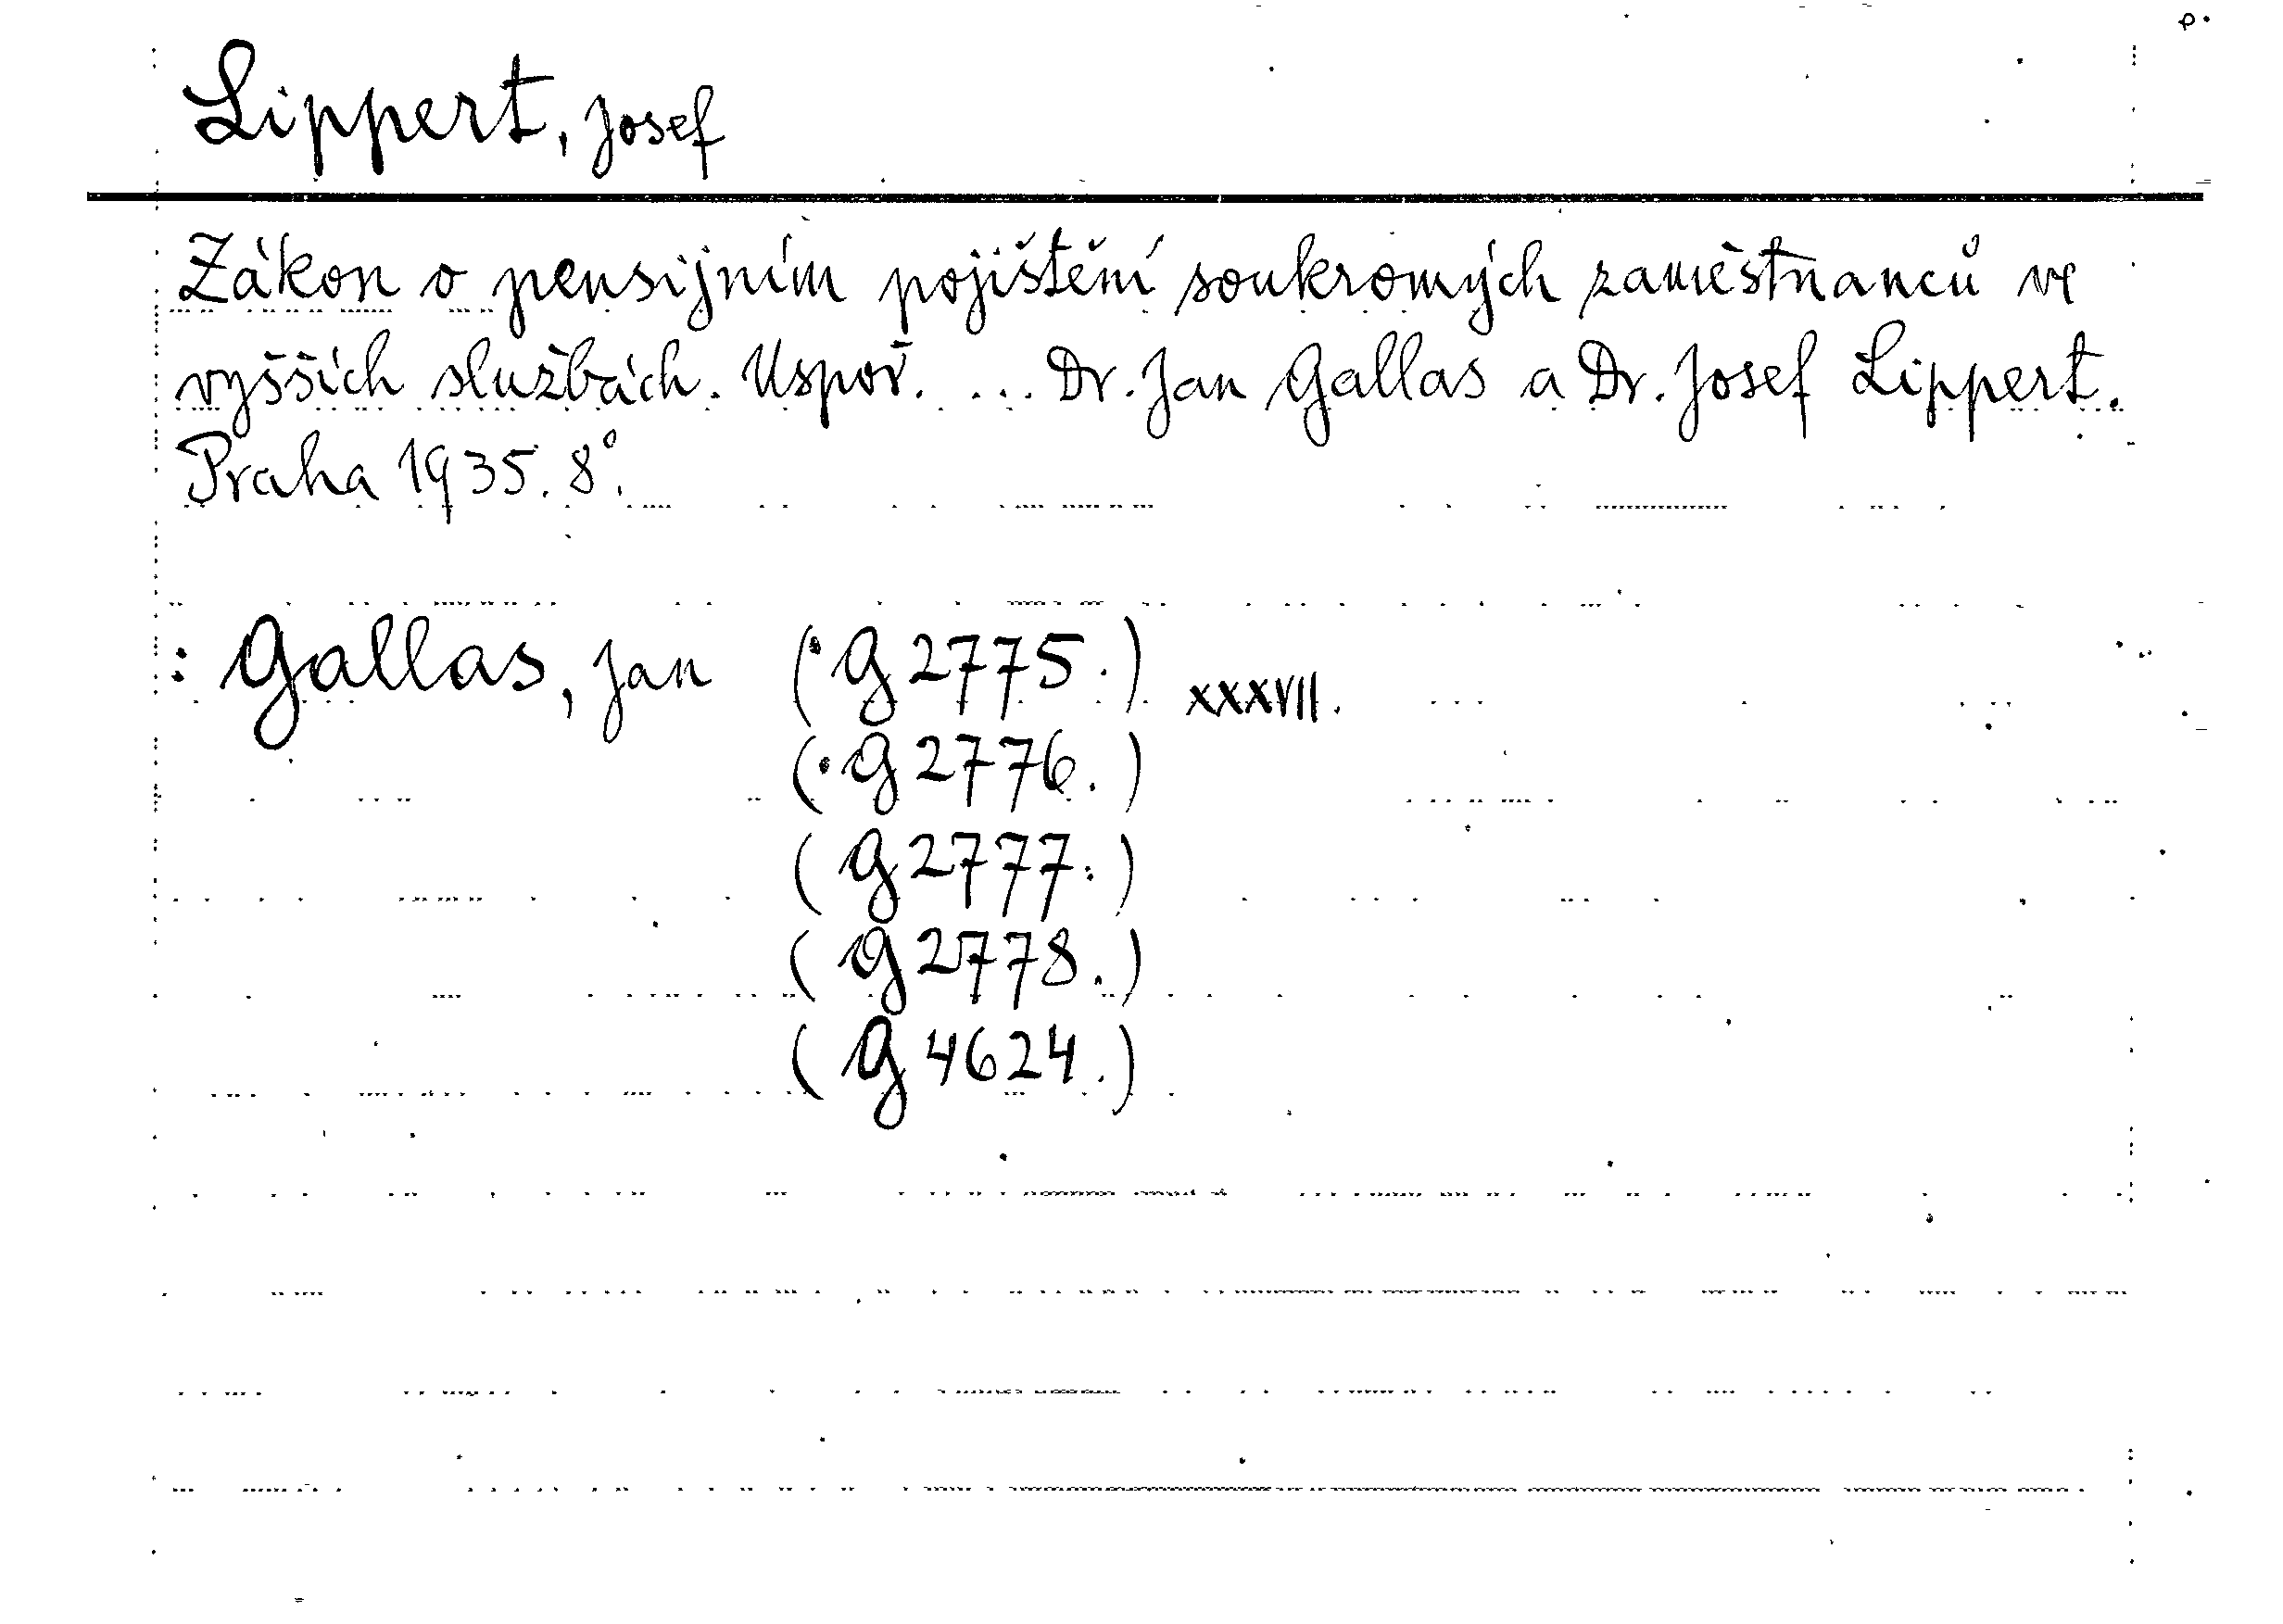 p.
Lippert, Josef
Zákon o pensijním pojištění soukromých zaměstnanců ve
vyšších službách. Uspoř. ... Dr. Jan Gallas a Dr. Josef Lippert.
Praha 1935. 8°.
: Gallas, Jan (G 2775.) XXXVII.
(G 2776.)
(G 2777.)
(G 2778.)
(G 4624.)